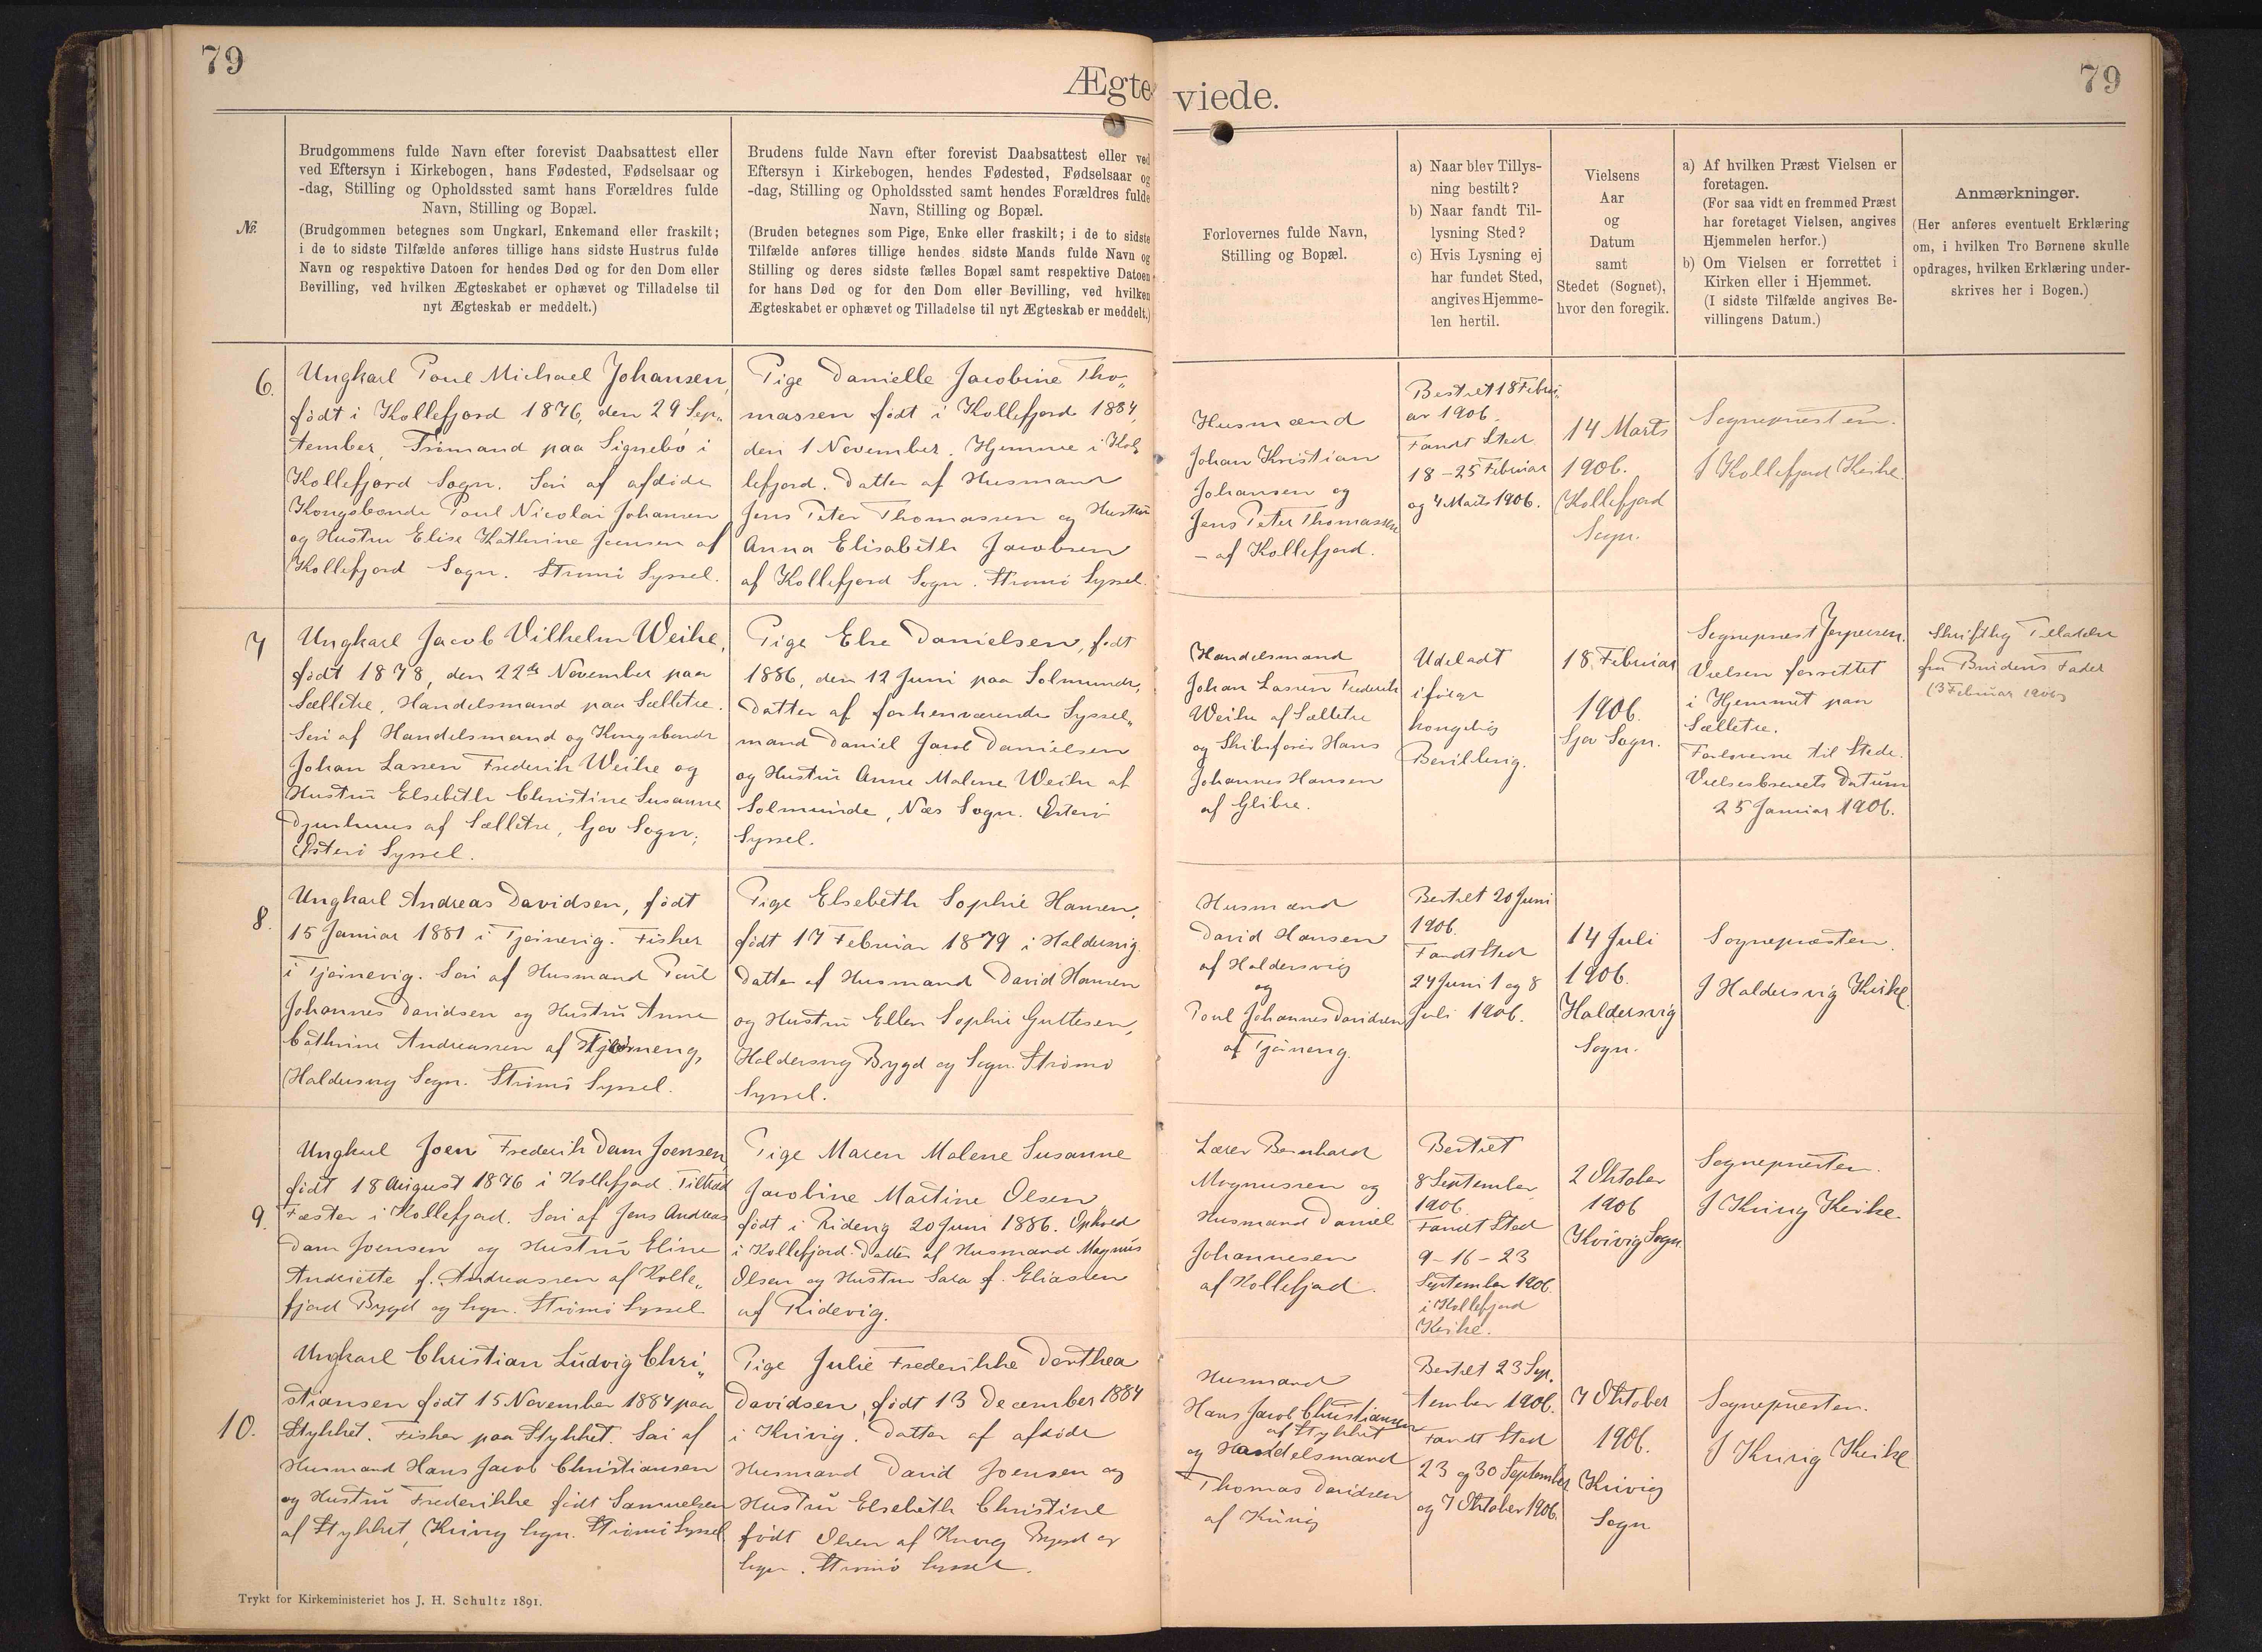 79
Ægte
viede.
79
№.
Brudgommens fulde Navn efter forevist Daabsattest eller
ved Eftersyn i Kirkebogen, hans Fødested, Fødselsaar og
-dag, Stilling og Opholdssted samt hans Forældres fulde
Navn, Stilling og Bopæl.
(Brudgommen betegnes som Ungkarl, Enkemand eller fraskilt;
i de to sidste Tilfælde anføres tillige hans sidste Hustrus fulde
Navn og respektive Datoen for hendes Død og for den Dom eller
Bevilling, ved hvilken Ægteskabet er ophævet og Tilladelse til
nyt Ægteskab er meddelt.)
Brudens fulde Navn efter forevist Daabsattest eller ved
Eftersyn i Kirkebogen, hendes Fødested, Fødselsaar og
-dag, Stilling og Opholdssted samt hendes Forældres fulde
Navn, Stilling og Bopæl.
(Bruden betegnes som Pige, Enke eller fraskilt; i de to sidste
Tilfælde anføres tillige hendes sidste Mands fulde Navn og
Stilling og deres sidste fælles Bopæl samt respektive Datoen
for hans Død og for den Dom eller Bevilling, ved hvilken
Ægteskabet er ophævet og Tilladelse til nyt Ægteskab er meddelt.)
Forlovernes fulde Navn,
Stilling og Bopæl.
a) Naar blev Tillys-
ning bestilt?
b) Naar fandt Til-
lysning Sted?
c) Hvis Lysning ej
har fundet Sted,
angives Hjemme-
len hertil.
Vielsens
Aar
og
Datum
samt
Stedet (Sognet),
hvor den foregik.
a) Af hvilken Præst Vielsen er
foretagen.
(For saa vidt en fremmed Præst
har foretaget Vielsen, angives
Hjemmelen herfor.)
b) Om Vielsen er forrettet i
Kirken eller i Hjemmet.
(I sidste Tilfælde angives Be-
villingens Datum.)
Anmærkninger.
(Her anføres eventuelt Erklæring
om, i hvilken Tro Børnene skulle
opdrages, hvilken Erklæring under-
skrives her i Bogen.)
6.
Ungkarl Poul Michael Johansen,
født i Kollefjord 1876, den 29 Sep„
tember, Trømand paa Signebø i
Kollefjord Sogn. Søn af afdøde
Kongsbonde Poul Nicolai Johansen
og Hustru Elise Kathrine Joensen af
Kollefjord Sogn. Strømø Syssel.
Pige Danielle Jacobine Tho„
massen født i Kollefjord 1884,
den 1 November. Hjemme i Kol„
lefjord. Datter af Husmand
Jens Peter Thomassen og Hustru
Anna Elisabeth Jacobsen
af Kollefjord Sogn. Strømø Syssel.
Husmænd
Johan Kristian
Johansen og
Jens Peter Thomassen
– af Kollefjord.
Bestilt 18 Febru„
ar 1906.
Fandt Sted
18–25 Februar
og 4 Marts 1906.
14 Marts
1906.
Kollefjord
Sogn.
Sognepræsten.
I Kollefjord Kirke.
7
Ungkarl Jacob Vilhelm Weihe,
født 1878, den 22de November paa
Sælletre, Handelsmand paa Sælletre.
Søn af Handelsmand og Kongsbonde
Johan Lassen Frederik Weihe og
Hustru Elsebeth Christine Susanne
Djurhuus af Sælletre, Gjov Sogn,
Østerø Syssel.
Pige Else Danielsen, født
1886, den 12 Juni paa Solmunde,
Datter af forhenværende Syssel„
mand Daniel Jacob Danielsen
og Hustru Anne Malene Weihe af
Solmunde, Næs Sogn. Østerø
Syssel.
Handelsmand
Johan Lassen Frederik
Weihe af Sælletre
og Skibsfører Hans
Johannes Hansen
af Glibre.
Udeladt
ifølge
kongelig
Bevilling.
18 Februar
1906.
Gjov Sogn.
Sognepræst Jespersen.
Vielsen forrettet
i Hjemmet paa
Sælletre.
Forloverne til Stede.
Vielsesbrevets Datum
25 Januar 1906.
Skriftlig Tilladelse
fra Brudens Fader
(3 Februar 1906)
8.
Ungkarl Andreas Davidsen, født
15 Januar 1881 i Tjørnevig. Fisker
i Tjørnevig. Søn af Husmand Poul
Johannes Davidsen og Hustru Anne
Cathrine Andreassen af Tjørnevig,
Haldersvig Sogn. Strømø Syssel.
Pige Elsebeth Sophie Hansen,
født 17 Februar 1879 i Haldersvig.
Datter af Husmand David Hansen
og Hustru Ellen Sophie Guttesen,
Haldersvig Bygd og Sogn. Strømø
Syssel.
Husmænd
David Hansen
af Haldersvig
og
Poul Johannes Davidsen
af Tjørnevig.
Bestilt 20 Juni
1906.
Fandt Sted
24 Juni 1 og 8
Juli 1906.
14 Juli
1906.
Haldersvig
Sogn.
Sognepræsten.
I Haldersvig Kirke.
9.
Ungkarl Joen Frederik Dam Joensen,
født 18 August 1876 i Kollefjord. Tilhold
Fæster i Kollefjord. Søn af Jens Andreas
Dam Joensen og Hustru Eline
Andriette f. Andreassen af Kolle„
fjord Bygd og Sogn. Strømø Syssel
Pige Maren Malene Susanne
Jacobine Martine Olsen
født i Ridevig 20 Juni 1886. Ophold
i Kollefjord. Datter af Husmand Magnus
Olsen og Hustru Sara f. Eliassen
af Ridevig.
Lærer Bernhard
Magnussen og
Husmand Daniel
Johannesen
af Kollefjord.
Bestilt
8 September
1906.
Fandt Sted
9–16–23
September 1906.
i Kollefjord
Kirke.
2 Oktober
1906
Kvivig Sogn.
Sognepræsten.
I Kvivig Kirke.
10.
Ungkarl Christian Ludvig Chri„
stiansen født 15 November 1884 paa
Stykket. Fisker paa Stykket. Søn af
Husmand Hans Jacob Christiansen
og Hustru Frederikke født Samuelsen
af Stykket, Kvivig Sogn. Strømø Syssel.
Pige Julie Frederikke Dorthea
Davidsen, født 13 December 1884
i Kvivig. Datter af afdøde
Husmand David Joensen og
Hustru Elsebeth Christine
født Olsen af Kvivig Bygd og
Sogn. Strømø Syssel.
Husmand
Hans Jacob Christiansen
af Stykket
og Handelsmand
Thomas Davidsen
af Kvivig
Bestilt 23 Sep.
tember 1906.
Fandt Sted
23 og 30 September
og 7 Oktober 1906.
7 Oktober
1906.
Kvivig
Sogn
Sognepræsten.
I Kvivig Kirke
Trykt for Kirkeministeriet hos J. H. Schultz 1891.